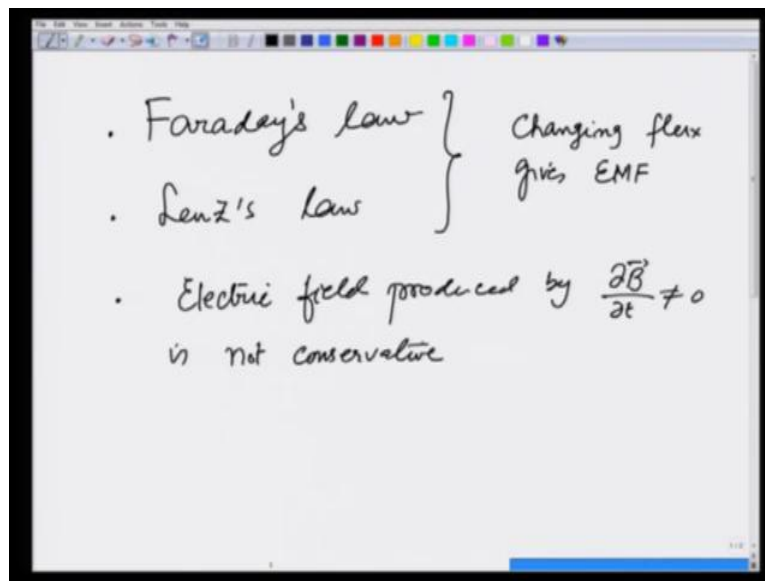 File Edit View Insert Actions Tools Help
. Faraday's law } Changing flux
gives EMF
. Lenz's law
. Electric field produced by ∂B⃗/∂t ≠ 0
is not conservative